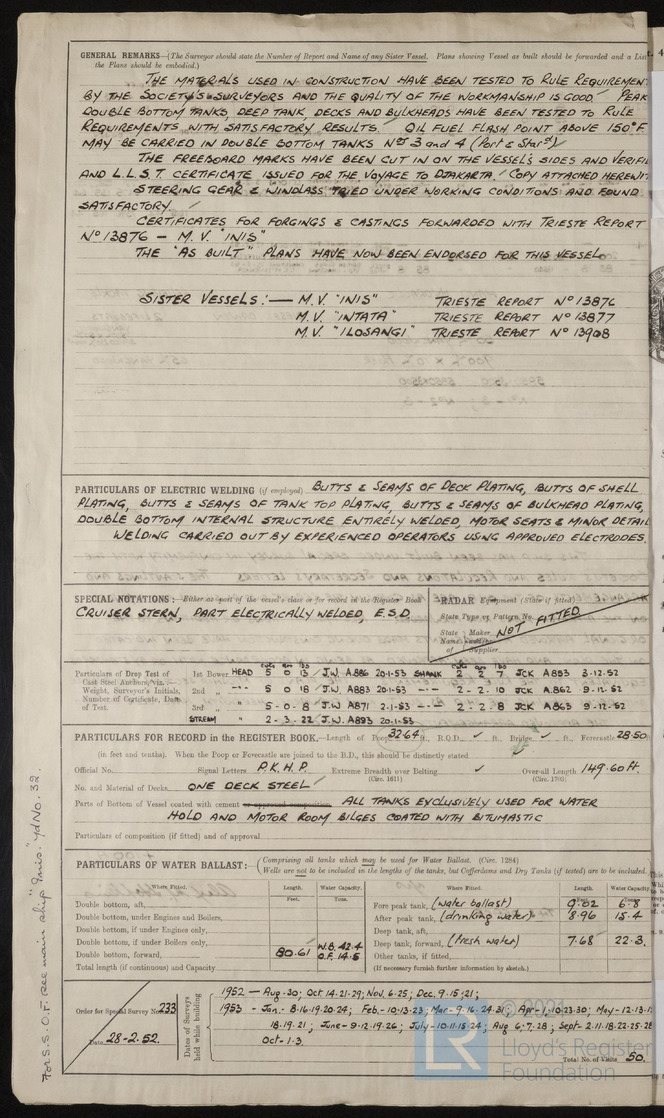 GENERAL REMARKS—(The Surveyor should state the Number of Report and Name of any Sister Vessel. Plans showing Vessel as built should be forwarded and a List
the Plans should be embodied.)
THE MATERIALS USED IN CONSTRUCTION HAVE BEEN TESTED TO RULE REQUIREMENT
BY THE SOCIETY'S SURVEYORS AND THE QUALITY OF THE WORKMANSHIP IS GOOD. PEAK
DOUBLE BOTTOM TANKS, DEEP TANK, DECKS AND BULKHEADS HAVE BEEN TESTED TO RULE
REQUIREMENTS WITH SATISFACTORY RESULTS. OIL FUEL FLASH POINT ABOVE 150°F
MAY BE CARRIED IN DOUBLE BOTTOM TANKS Nos 3 and 4 (Port & Starbd)
THE FREEBOARD MARKS HAVE BEEN CUT IN ON THE VESSEL'S SIDES AND VERIFI
AND L.L.S.T. CERTIFICATE ISSUED FOR THE VOYAGE TO DJAKARTA. COPY ATTACHED HEREWIT
STEERING GEAR & WINDLASS TRIED UNDER WORKING CONDITIONS AND FOUND
SATISFACTORY.
CERTIFICATES FOR FORGINGS & CASTINGS FORWARDED WITH TRIESTE REPORT
No 13876 — M.V. "INIS"
THE "AS BUILT" PLANS HAVE NOW BEEN ENDORSED FOR THIS VESSEL
SISTER VESSELS:— M.V. "INIS" TRIESTE REPORT No 13876
M.V. "INTATA" TRIESTE REPORT No 13877
M.V. "ILOSANGI" TRIESTE REPORT No 13908
PARTICULARS OF ELECTRIC WELDING (if employed) BUTTS & SEAMS OF DECK PLATING, BUTTS OF SHELL
PLATING, BUTTS & SEAMS OF TANK TOP PLATING, BUTTS & SEAMS OF BULKHEAD PLATING,
DOUBLE BOTTOM INTERNAL STRUCTURE ENTIRELY WELDED, MOTOR SEATS & MINOR DETAIL
WELDING CARRIED OUT BY EXPERIENCED OPERATORS USING APPROVED ELECTRODES.
SPECIAL NOTATIONS:—Either as part of the vessel's class or for record in the Register Book
CRUISER STERN, PART ELECTRICALLY WELDED, E.S.D
RADAR Equipment (State if fitted)
State Type or Pattern No.
NOT FITTED
State Name of Maker Supplier
Particulars of Drop Test of Cast Steel Anchors, viz.:— Weight, Surveyor's Initials, Number of Certificate, Date of Test.
cwts qrs lbs cwts qrs lbs
1st Bower HEAD 5 0 13 J.W. A886 20.1.53 SHANK 2 2 7 JCK A853 3.12.52
2nd „ —"— 5 0 18 J.W. A883 20.1.53 —"— 2 - 2 - 10 JCK A.862 9.12.52
3rd „ " 5 - 0 - 8 J.W A871 2.1.53 —"— 2 - 2 - 8 JCK A863 9.12.52
STREAM " 2 - 3 - 22 J.W. A893 20.1.53
PARTICULARS FOR RECORD in the REGISTER BOOK.—Length of Poop 32.64 ft., R.Q.D. ✓ ft., Bridge ✓ ft., Forecastle 28.50
(in feet and tenths). When the Poop or Forecastle are joined to the B.D., this should be distinctly stated
Official No. Signal Letters P.K.H.P. Extreme Breadth over Belting ✓ (Circ. 1611) Over-all Length 149.60 ft. (Circ. 1703)
No. and Material of Decks ONE DECK STEEL
Parts of Bottom of Vessel coated with cement or approved composition ALL TANKS EXCLUSIVELY USED FOR WATER
HOLD AND MOTOR ROOM BILGES COATED WITH BITUMASTIC
Particulars of composition (if fitted) and of approval
PARTICULARS OF WATER BALLAST:— (Comprising all tanks which may be used for Water Ballast. (Circ. 1284)
Wells are not to be included in the lengths of the tanks, but Cofferdams and Dry Tanks (if tested) are to be included.
Where Fitted. Length. Water Capacity. Where Fitted. Length. Water Capacity
Feet. Tons.
Double bottom, aft, Fore peak tank, (water ballast) 9.02 6.8
Double bottom, under Engines and Boilers, After peak tank, (drinking water) 8.96 15.4
Double bottom, if under Engines only, Deep tank, aft,
Double bottom, if under Boilers only, Deep tank, forward, (fresh water) 7.68 22.3
Double bottom, forward, 80.61 W.B. 42.4 O.F. 14.5 Other tanks, if fitted,
Total length (if continuous) and Capacity (If necessary furnish further information by sketch.)
Order for Special Survey No. 233
Date 28-2.52.
Dates of Surveys held while building
1952 — Aug. 30; Oct 14.21.29; Nov. 6.25; Dec. 9.15.21;
1953 - Jan. 8.16.19.20.24; Feb. - 10.13.23; Mar - 9.16.24.31; Apr - 1.10.23.30; May - 12.13.1
18.19.21; June - 9.12.19.26; July - 10.11.15.24; Aug 6.7.28; Sept - 2.11.18.22.25.28
Oct - 1.3.
Total No. of Visits 50.
For S.S. O.F. see main ship "Inis." Yd No. 32.
© 2021
LR
Lloyd's Register
Foundation